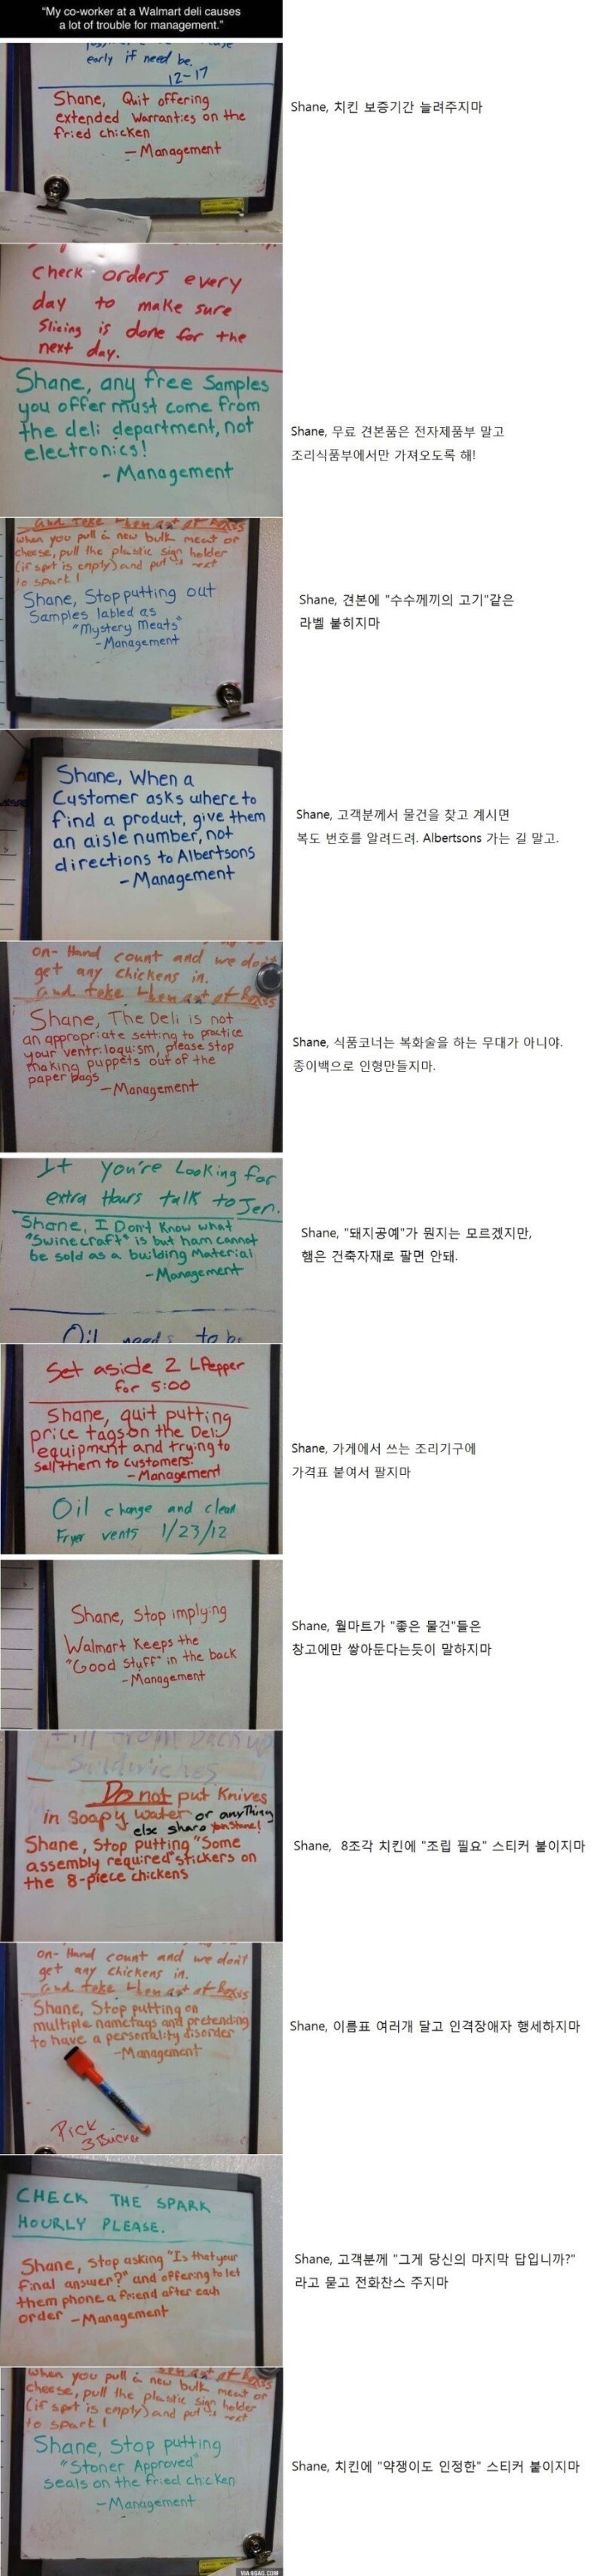 "My co-worker at a Walmart deli causes
a lot of trouble for management."
early if need be.
12-17
Shane, Quit offering
extended warranties on the
fried chicken
- Management
Shane, 치킨 보증기간 늘려주지마
Check orders every
day to make sure
Slicing is done for the
next day.
Shane, any free Samples
you offer must come from
the deli department, not
electronics!
- Management
Shane, 무료 견본품은 전자제품부 말고
조리식품부에서만 가져오도록 해!
and take them out of Boxes
when you pull a new bulk meat or
cheese, pull the plastic sign holder
(if spot is empty) and put it next
to spark!
Shane, Stop putting out
Samples labled as
"Mystery Meats"
- Management
Shane, 견본에 "수수께끼의 고기"같은
라벨 붙히지마
Shane, When a
Customer asks where to
find a product, give them
an aisle number, not
directions to Albertsons
- Management
Shane, 고객분께서 물건을 찾고 계시면
복도 번호를 알려드려. Albertsons 가는 길 말고.
on-Hand count and we don't
get any chickens in.
and take them out of Boxes
Shane, The Deli is not
an appropriate setting to practice
your ventriloquism, please stop
making puppets out of the
paper bags
- Management
Shane, 식품코너는 복화술을 하는 무대가 아니야.
종이백으로 인형만들지마.
If you're Looking for
extra Hours talk to Jen.
Shane, I Don't Know what
"Swinecraft" is but ham cannot
be sold as a building Material
- Management
Oil needs to be
Shane, "돼지공예"가 뭔지는 모르겠지만,
햄은 건축자재로 팔면 안돼.
Set aside 2 LPepper
for 5:00
Shane, quit putting
price tags on the Deli
equipment and trying to
sell them to customers.
- Management
Oil change and clean
Fryer vents 1/23/12
Shane, 가게에서 쓰는 조리기구에
가격표 붙여서 팔지마
Shane, Stop implying
Walmart Keeps the
"Good Stuff" in the back
- Management
Shane, 월마트가 "좋은 물건"들은
창고에만 쌓아둔다는듯이 말하지마
Sandwiches
Do not put Knives
in Soapy water or anything
else sharp
Shane, Stop putting "Some
assembly required" stickers on
the 8-piece chickens
Shane, 8조각 치킨에 "조립 필요" 스티커 붙이지마
on-Hand count and we don't
get any chickens in.
and take them out of Boxes
Shane, Stop putting on
multiple nametags and pretending
to have a personality disorder
- Management
Pick
3 Bucket
Shane, 이름표 여러개 달고 인격장애자 행세하지마
CHECK THE SPARK
HOURLY PLEASE.
Shane, Stop asking "Is that your
final answer?" and offering to let
them phone a friend after each
order - Management
Shane, 고객분께 "그게 당신의 마지막 답입니까?"
라고 묻고 전화찬스 주지마
them out of Boxes
when you pull a new bulk meat or
cheese, pull the plastic sign holder
(if spot is empty) and put it next
to spark!
Shane, Stop putting
"Stoner Approved"
seals on the fried chicken
- Management
Shane, 치킨에 "약쟁이도 인정한" 스티커 붙이지마
VIA 9GAG.COM